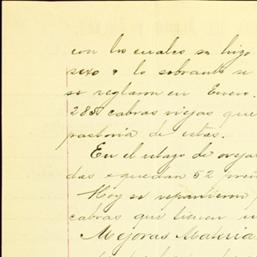 con los cuales se hizo
sexo y lo sobrante se
se reglaron en Enero.
285 cabras viejas que
pastoria de estas.
En el atajo de ovejas
das quedan 52 preñ
Hoy se repartieron
cabras que tienen un
Mejoras Materia